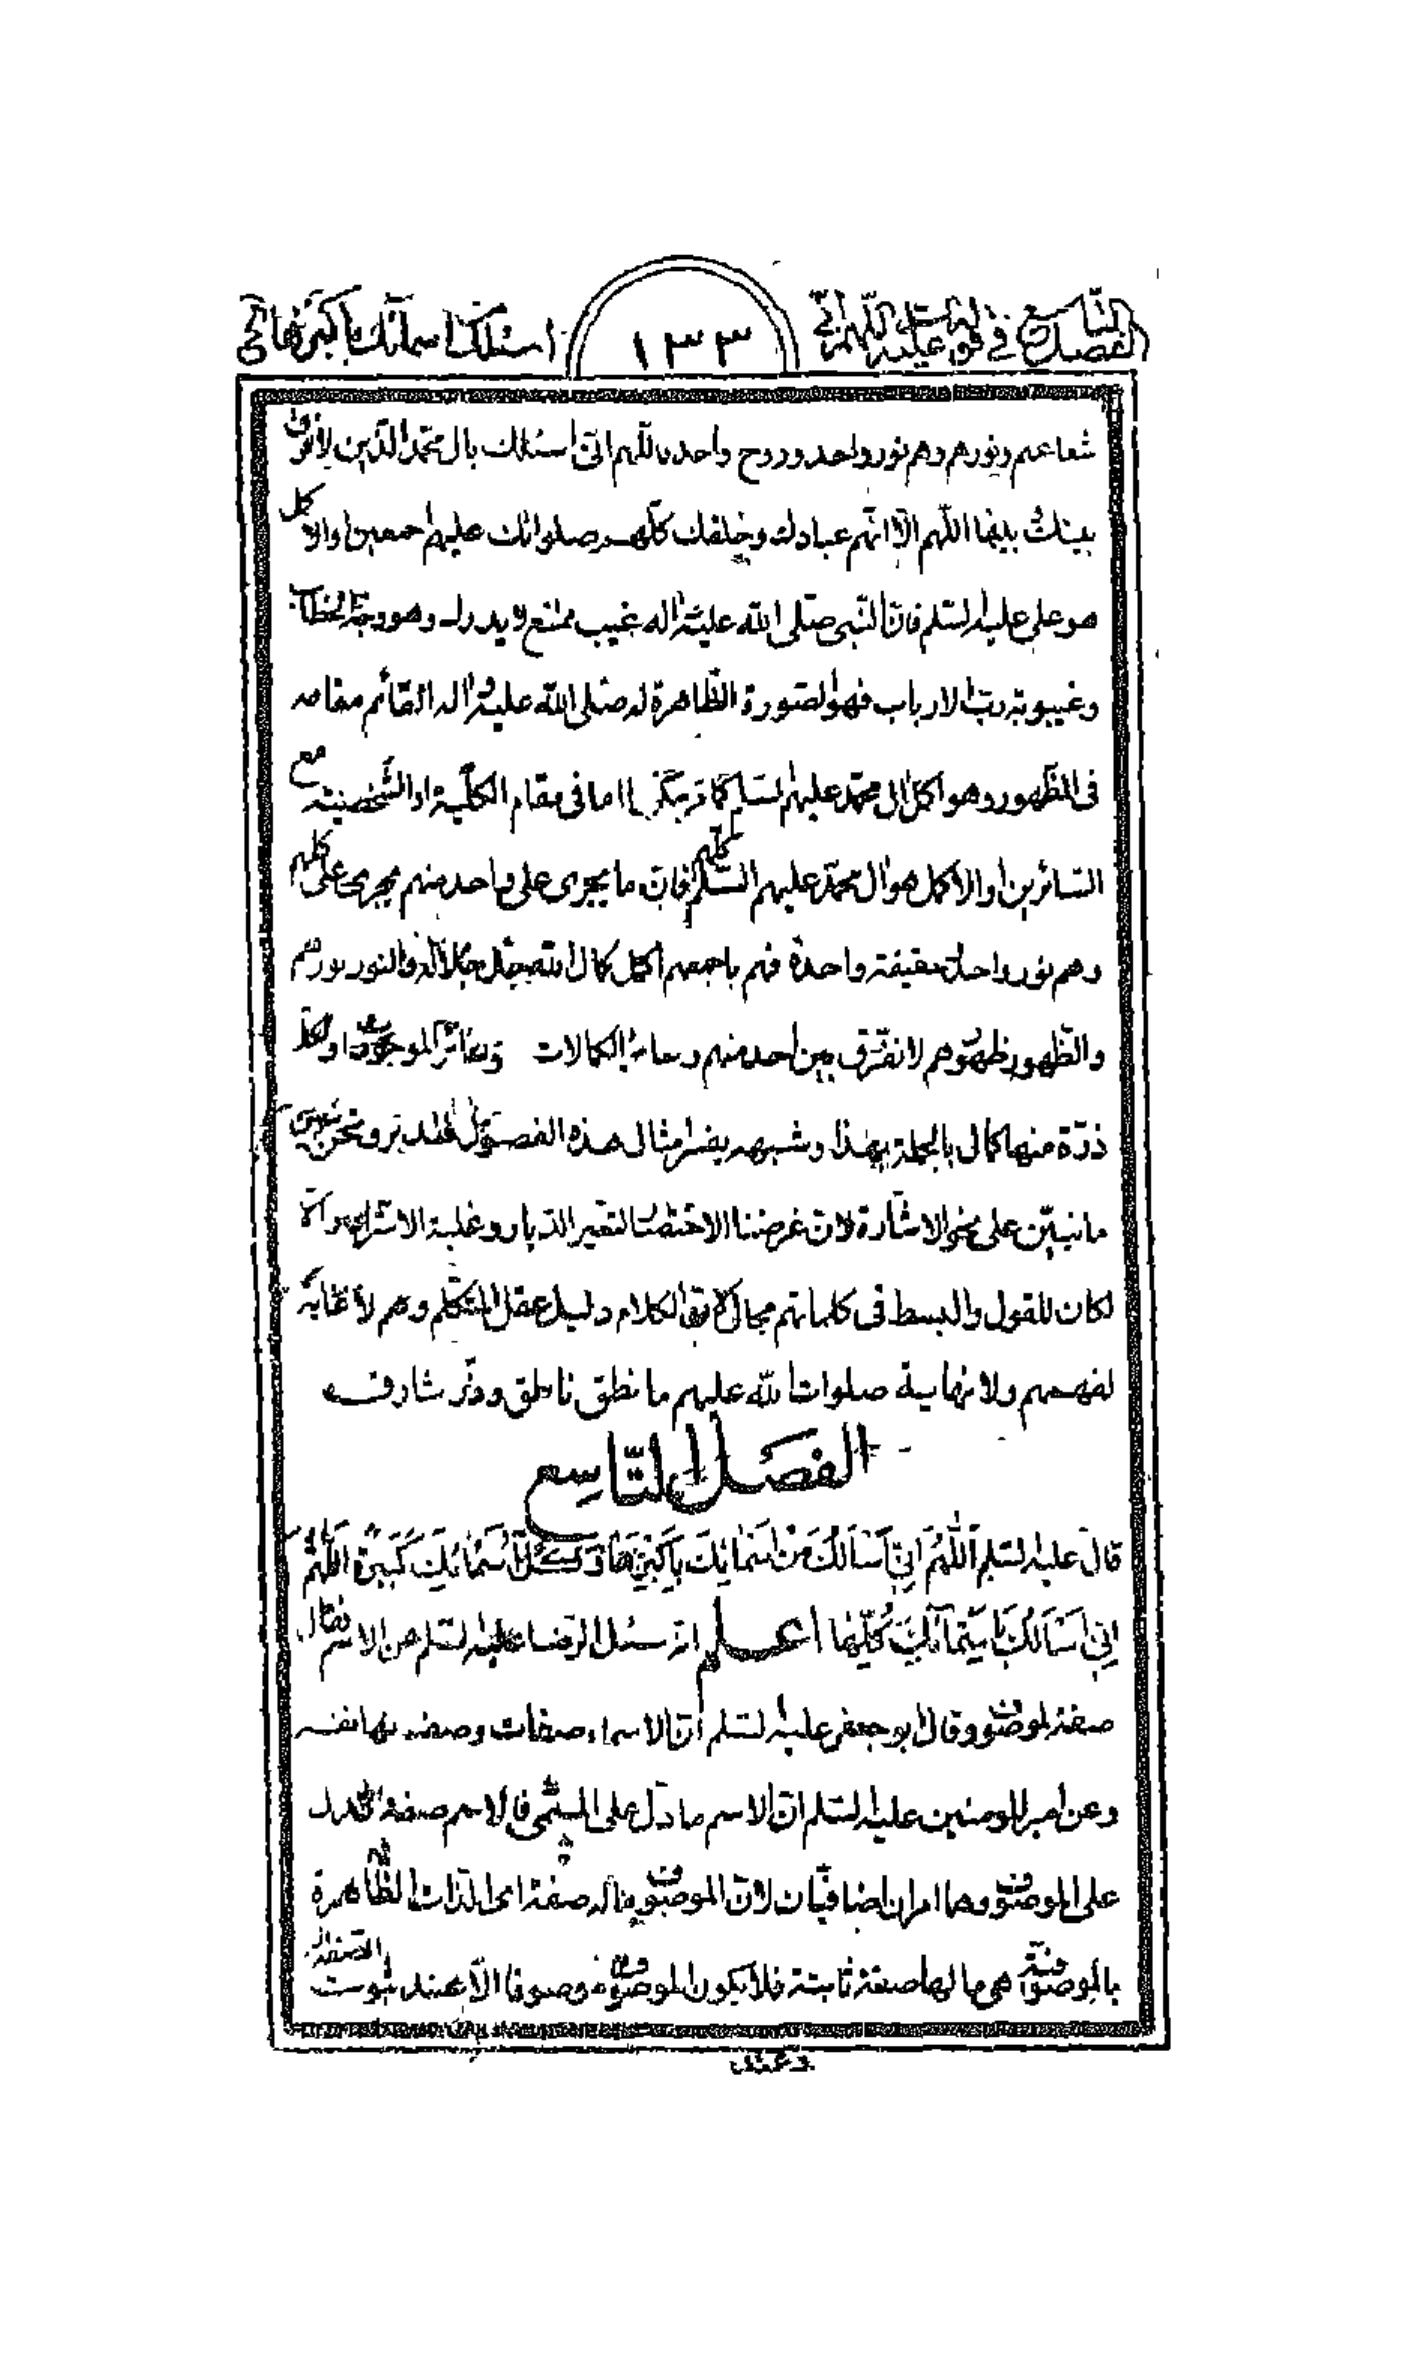 الفصل التاسع في قوله عليه السلام اللهم اني
١٣٣
اسئلك من اسمائك باكبرها الخ
شعاعهم ونورهم وهم نور واحد وروح واحدة اللهم انى اسئلك بال محمد الذين لا فرق
بينك بينها اللهم الّا انّهم عبادك وخلقك كلّهم صلواتك عليهم اجمعين او الاكمل
هو على عليه السلم فانّ النّبى صلى الله عليه واله غيب ممتنع لا يدرك وهو وجهة
وغيبوبة رب الارباب فهو الصورة الظّاهرة له صلى الله عليه واله القائم مقامه
فى الظّهور وهو اكمل ال محمّد عليهم السلم اما فى مقام الكلّية او الشّخصيّة مع
السّائرين او الاكمل هو ال محمّد عليهم السّلم كلّهم فانّ ما يجرى على واحد منهم يجرى على كلهم
وهم نور واحد حقيقة واحدة فهم باجمعهم اكمل كمال الله جلّ جلاله فالنور نورهم
والظّهور ظهورهم لا نفرّق بين احد منهم وسائر الكمالات الموجودة او الكل
ذرّة منها كمالى بالجملة بهذا وشبهه يفسر امثال هذه الفصول فتدبر ونحن
ما نبيّن على نحو الاشارة لانّ غرضنا الاختصار لتغير الديار وغلبة الاشرار والّا
لكان للقول والبسط فى كلماتهم مجال لانّ الكلام دليل عقل المتكلّم وهم لا غاية
لفهمهم ولا نهاية صلوات الله عليهم ما نطق ناطق وذرّ شارق
الفصل التّاسع
قال عليه السلم اَللّهُمَّ اِنّى اَسْاَلُكَ مِنْ اَسْمائِكَ بِاَكْبَرِها وَكُلُّ اَسْمائِكَ كَبيرَةٌ اَللّهُمَّ
اِنّى اَسْاَلُكَ بِاَسْمآئِكَ كُلِّها اعلم انّه سئل الرّضا عليه السلم عن الاسم فقال
صفة لموصوف وقال ابو جعفر عليه السلم انّ الاسماء صفات وصف بها نفسه
وعن امير المومنين عليه السلم انّ الاسم ما دلّ على المسمّى فالاسم صفة تدل
على الموصوف وهما امران اضافيّان لانّ الموصوف ما له صفة اى الذات الظّاهرة
بالموصوفيّة هى ما لها صفة ثابتة فلا يكون الموصوف موصوفا الّا عند ثبوت الصفة له
وعند